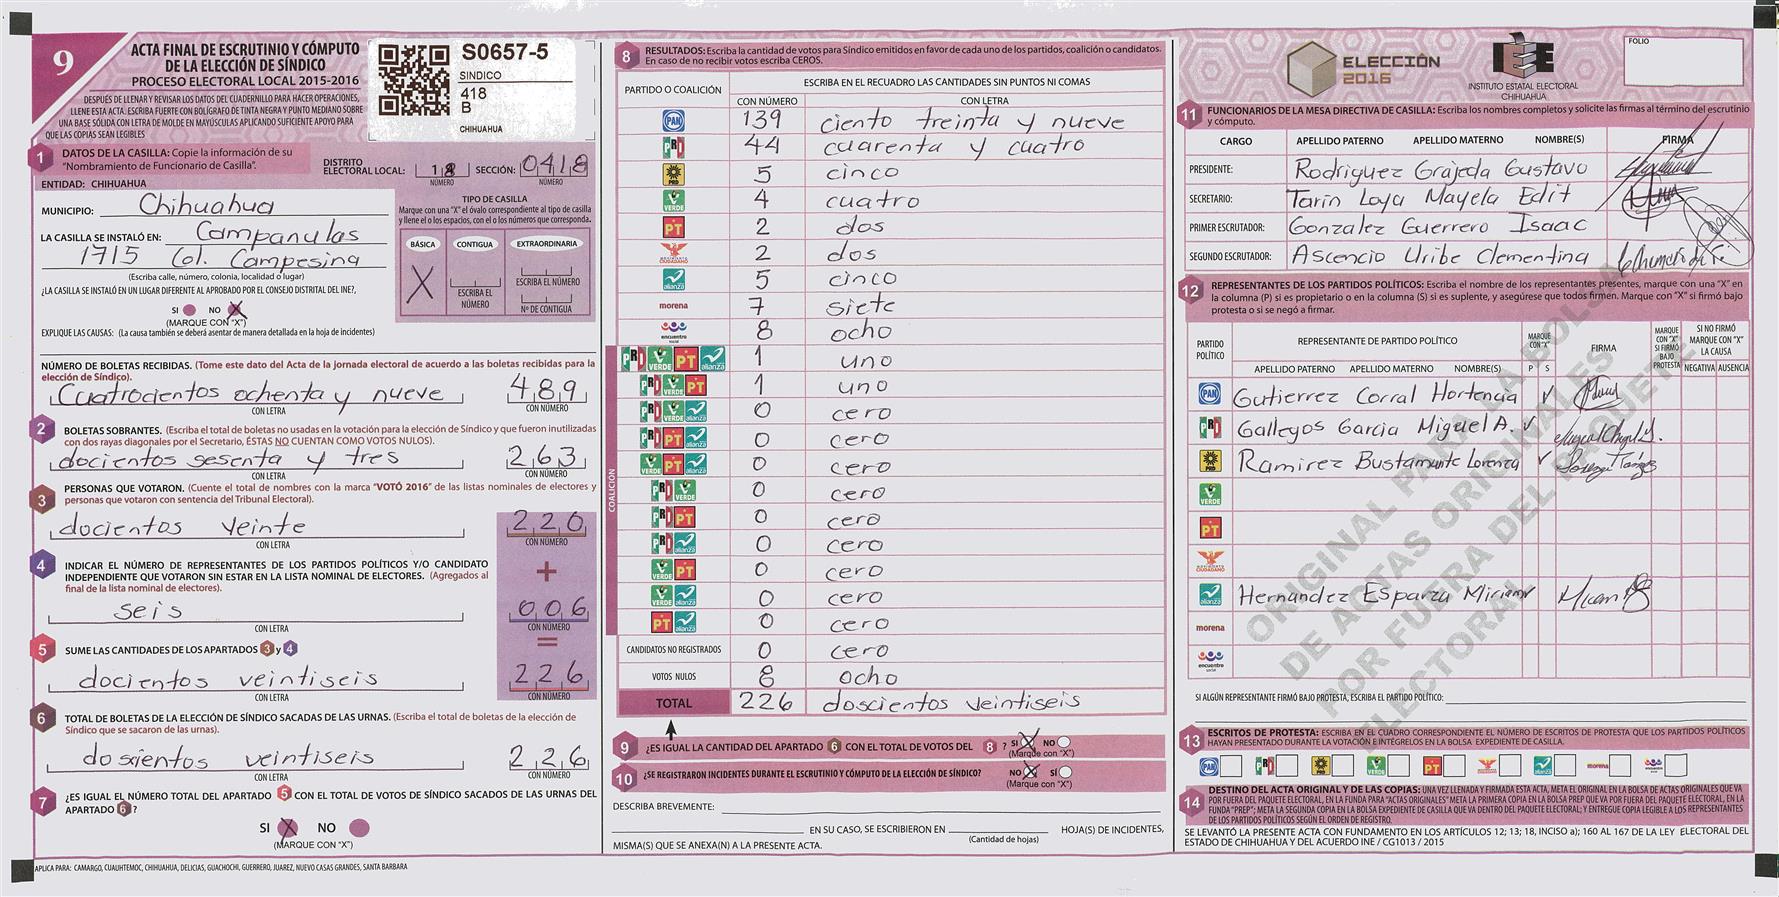 9
ACTA FINAL DE ESCRUTINIO Y CÓMPUTO
DE LA ELECCIÓN DE SÍNDICO
PROCESO ELECTORAL LOCAL 2015-2016
DESPUÉS DE LLENAR Y REVISAR LOS DATOS DEL CUADERNILLO PARA HACER OPERACIONES,
LLENE ESTA ACTA. ESCRIBA FUERTE CON BOLÍGRAFO DE TINTA NEGRA Y PUNTO MEDIANO SOBRE
UNA BASE SÓLIDA CON LETRA DE MOLDE EN MAYÚSCULAS APLICANDO SUFICIENTE APOYO PARA
QUE LAS COPIAS SEAN LEGIBLES
S0657-5
SINDICO
418
B
CHIHUAHUA
1 DATOS DE LA CASILLA: Copie la información de su
"Nombramiento de Funcionario de Casilla".
DISTRITO
ELECTORAL LOCAL: 18 SECCIÓN: 0418
NÚMERO NÚMERO
ENTIDAD: CHIHUAHUA
MUNICIPIO: Chihuahua
LA CASILLA SE INSTALÓ EN: Campanulas
1715 Col. Campesina
(Escriba calle, número, colonia, localidad o lugar)
¿LA CASILLA SE INSTALÓ EN UN LUGAR DIFERENTE AL APROBADO POR EL CONSEJO DISTRITAL DEL INE?,
SI NO X
(MARQUE CON "X")
EXPLIQUE LAS CAUSAS: (La causa también se deberá asentar de manera detallada en la hoja de incidentes)
TIPO DE CASILLA
Marque con una "X" el óvalo correspondiente al tipo de casilla
y llene el o los espacios, con el o los números que corresponda.
BÁSICA CONTIGUA EXTRAORDINARIA
X
ESCRIBA EL NÚMERO
ESCRIBA EL NÚMERO
Nº DE CONTIGUA
NÚMERO DE BOLETAS RECIBIDAS. (Tome este dato del Acta de la jornada electoral de acuerdo a las boletas recibidas para la
elección de Síndico).
Cuatrocientos ochenta y nueve 489
CON LETRA CON NÚMERO
2 BOLETAS SOBRANTES. (Escriba el total de boletas no usadas en la votación para la elección de Síndico y que fueron inutilizadas
con dos rayas diagonales por el Secretario, ÉSTAS NO CUENTAN COMO VOTOS NULOS).
docientos sesenta y tres 263
CON LETRA CON NÚMERO
3 PERSONAS QUE VOTARON. (Cuente el total de nombres con la marca "VOTÓ 2016" de las listas nominales de electores y
personas que votaron con sentencia del Tribunal Electoral).
docientos veinte 220
CON LETRA CON NÚMERO
4 INDICAR EL NÚMERO DE REPRESENTANTES DE LOS PARTIDOS POLÍTICOS Y/O CANDIDATO
INDEPENDIENTE QUE VOTARON SIN ESTAR EN LA LISTA NOMINAL DE ELECTORES. (Agregados al
final de la lista nominal de electores).
+
seis 006
CON LETRA CON NÚMERO
=
5 SUME LAS CANTIDADES DE LOS APARTADOS 3 y 4
docientos veintiseis 226
CON LETRA CON NÚMERO
6 TOTAL DE BOLETAS DE LA ELECCIÓN DE SÍNDICO SACADAS DE LAS URNAS. (Escriba el total de boletas de la elección de
Síndico que se sacaron de las urnas).
dosientos veintiseis 226
CON LETRA CON NÚMERO
7 ¿ES IGUAL EL NÚMERO TOTAL DEL APARTADO 5 CON EL TOTAL DE VOTOS DE SÍNDICO SACADOS DE LAS URNAS DEL
APARTADO 6?
SI X NO
(MARQUE CON "X")
APLICA PARA: CAMARGO, CUAUHTEMOC, CHIHUAHUA, DELICIAS, GUACHOCHI, GUERRERO, JUAREZ, NUEVO CASAS GRANDES, SANTA BARBARA
8 RESULTADOS: Escriba la cantidad de votos para Síndico emitidos en favor de cada uno de los partidos, coalición o candidatos.
En caso de no recibir votos escriba CEROS.
PARTIDO O COALICIÓN ESCRIBA EN EL RECUADRO LAS CANTIDADES SIN PUNTOS NI COMAS
CON NÚMERO CON LETRA
PAN 139 ciento treinta y nueve
PRI 44 cuarenta y cuatro
PRD 5 cinco
VERDE 4 cuatro
PT 2 dos
MOVIMIENTO CIUDADANO 2 dos
alianza 5 cinco
morena 7 siete
encuentro social 8 ocho
COALICIÓN
PRI VERDE PT alianza 1 uno
PRI VERDE PT 1 uno
PRI VERDE alianza 0 cero
PRI PT alianza 0 cero
VERDE PT alianza 0 cero
PRI VERDE 0 cero
PRI PT 0 cero
PRI alianza 0 cero
VERDE PT 0 cero
VERDE alianza 0 cero
PT alianza 0 cero
CANDIDATOS NO REGISTRADOS 0 cero
VOTOS NULOS 8 ocho
TOTAL 226 doscientos veintiseis
9 ¿ES IGUAL LA CANTIDAD DEL APARTADO 6 CON EL TOTAL DE VOTOS DEL 8 ? SI X NO
(Marque con "X")
10 ¿SE REGISTRARON INCIDENTES DURANTE EL ESCRUTINIO Y CÓMPUTO DE LA ELECCIÓN DE SÍNDICO? NO X SÍ
(Marque con "X")
DESCRIBA BREVEMENTE:
EN SU CASO, SE ESCRIBIERON EN HOJA(S) DE INCIDENTES,
(Cantidad de hojas)
MISMA(S) QUE SE ANEXA(N) A LA PRESENTE ACTA.
ELECCIÓN
2016
IEE
INSTITUTO ESTATAL ELECTORAL
CHIHUAHUA
FOLIO
11 FUNCIONARIOS DE LA MESA DIRECTIVA DE CASILLA: Escriba los nombres completos y solicite las firmas al término del escrutinio
y cómputo.
CARGO APELLIDO PATERNO APELLIDO MATERNO NOMBRE(S) FIRMA
PRESIDENTE: Rodriguez Grajeda Gustavo
SECRETARIO: Tarin Loya Mayela Edit
PRIMER ESCRUTADOR: Gonzalez Guerrero Isaac
SEGUNDO ESCRUTADOR: Ascencio Uribe Clementina
12 REPRESENTANTES DE LOS PARTIDOS POLÍTICOS: Escriba el nombre de los representantes presentes, marque con una "X" en
la columna (P) si es propietario o en la columna (S) si es suplente, y asegúrese que todos firmen. Marque con "X" si firmó bajo
protesta o si se negó a firmar.
PARTIDO POLÍTICO REPRESENTANTE DE PARTIDO POLÍTICO MARQUE CON "X" FIRMA MARQUE CON "X" SI FIRMÓ BAJO PROTESTA SI NO FIRMÓ MARQUE CON "X" LA CAUSA
APELLIDO PATERNO APELLIDO MATERNO NOMBRE(S) P S NEGATIVA AUSENCIA
PAN Gutierrez Corral Hortencia
PRI Gallegos Garcia Miguel A.
PRD Ramirez Bustamante Lorenza
VERDE
PT
MOVIMIENTO CIUDADANO
alianza Hernandez Esparza Miriam
morena
encuentro social
ORIGINAL PARA LA BOLSA
DE ACTAS ORIGINALES
POR FUERA DEL PAQUETE
ELECTORAL
SI ALGÚN REPRESENTANTE FIRMÓ BAJO PROTESTA, ESCRIBA EL PARTIDO POLÍTICO:
13 ESCRITOS DE PROTESTA: ESCRIBA EN EL CUADRO CORRESPONDIENTE EL NÚMERO DE ESCRITOS DE PROTESTA QUE LOS PARTIDOS POLÍTICOS
HAYAN PRESENTADO DURANTE LA VOTACIÓN E INTÉGRELOS EN LA BOLSA EXPEDIENTE DE CASILLA.
PAN PRI PRD VERDE PT MOVIMIENTO CIUDADANO alianza morena encuentro social
14 DESTINO DEL ACTA ORIGINAL Y DE LAS COPIAS: UNA VEZ LLENADA Y FIRMADA ESTA ACTA, META EL ORIGINAL EN LA BOLSA DE ACTAS ORIGINALES QUE VA
POR FUERA DEL PAQUETE ELECTORAL, EN LA FUNDA PARA "ACTAS ORIGINALES" META LA PRIMERA COPIA EN LA BOLSA PREP QUE VA POR FUERA DEL PAQUETE ELECTORAL, EN LA
FUNDA "PREP"; META LA SEGUNDA COPIA EN LA BOLSA EXPEDIENTE DE CASILLA QUE VA DENTRO DEL PAQUETE ELECTORAL; Y ENTREGUE COPIA LEGIBLE A LOS REPRESENTANTES
DE LOS PARTIDOS POLÍTICOS SEGÚN EL ORDEN DE REGISTRO.
SE LEVANTÓ LA PRESENTE ACTA CON FUNDAMENTO EN LOS ARTÍCULOS 12; 13; 18, INCISO a); 160 AL 167 DE LA LEY ELECTORAL DEL
ESTADO DE CHIHUAHUA Y DEL ACUERDO INE / CG1013 / 2015